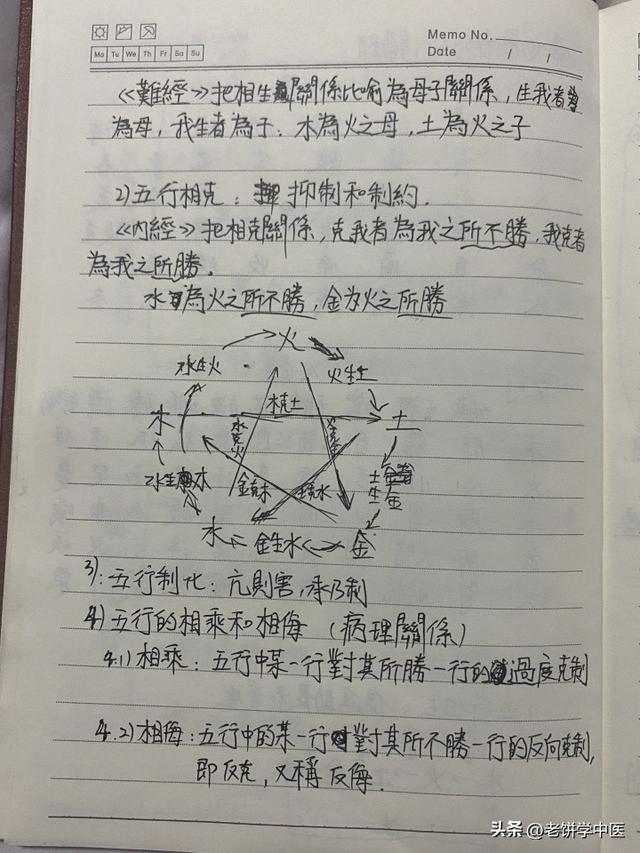 Memo No.
Mo Tu We Th Fr Sa Su
Date / /
《難經》把相生關係比喻為母子關係,生我者
為母,我生者為子.木為火之母,土為火之子
2)五行相克:抑制和制約.
《內經》把相克關係,克我者為我之所不勝,我克者
為我之所勝.
水為火之所不勝,金为火之所勝
火
木生火
火生土
木克土
木
水克火
火克金
土
土生金
水生木
金克木
土克水
水
金生水
金
3):五行制化:亢則害,承乃制
4)五行的相乘和相侮(病理關係)
4.1)相乘:五行中某一行對其所勝一行的過度克制
4.2)相侮:五行中的某一行對其所不勝一行的反向克制,
即反克,又稱反侮.
头条 @老饼学中医